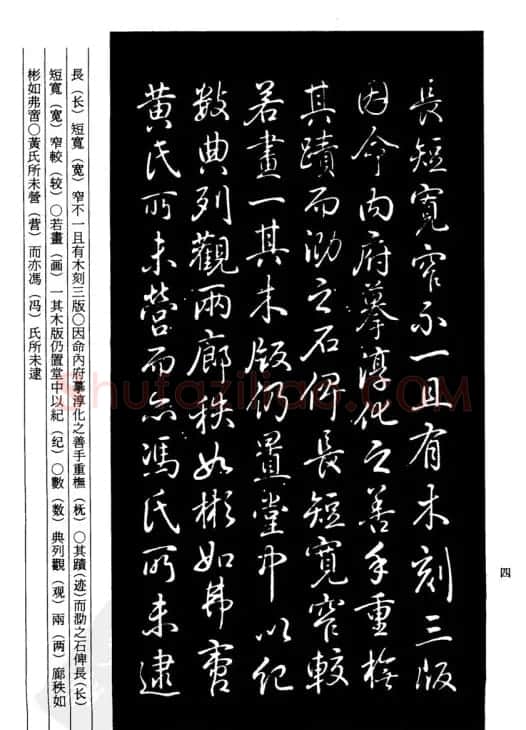 長短寬窄不一且有木刻三版
因命內府摹淳化之善手重橅
其蹟而泐之石俾長短寬窄較
若畫一其木版仍置堂中以紀
數典列觀兩廊秩如彬如弗啻
黃氏所未營而亦馮氏所未逮
長（长）短寬（宽）窄不一且有木刻三版〇因命內府摹淳化之善手重橅（抚）〇其蹟（迹）而泐之石俾長（长）
短寬（宽）窄較（较）〇若畫（画）一其木版仍置堂中以紀（纪）〇數（数）典列觀（观）兩（两）廊秩如
彬如弗啻〇黃氏所未營（营）而亦馮（冯）氏所未逮
四
Shufaziliao.COM